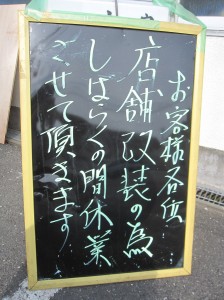 お客様各位
店舗改装の為
しばらくの間休業
させて頂きます